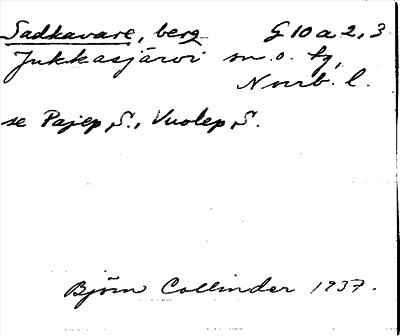 Sadkavare, berg G 10 a 2, 3
Jukkasjärvi sn. o. tg,
Norrb. l.
se Pajep S., Vuolep S.
Björn Collinder 1937.